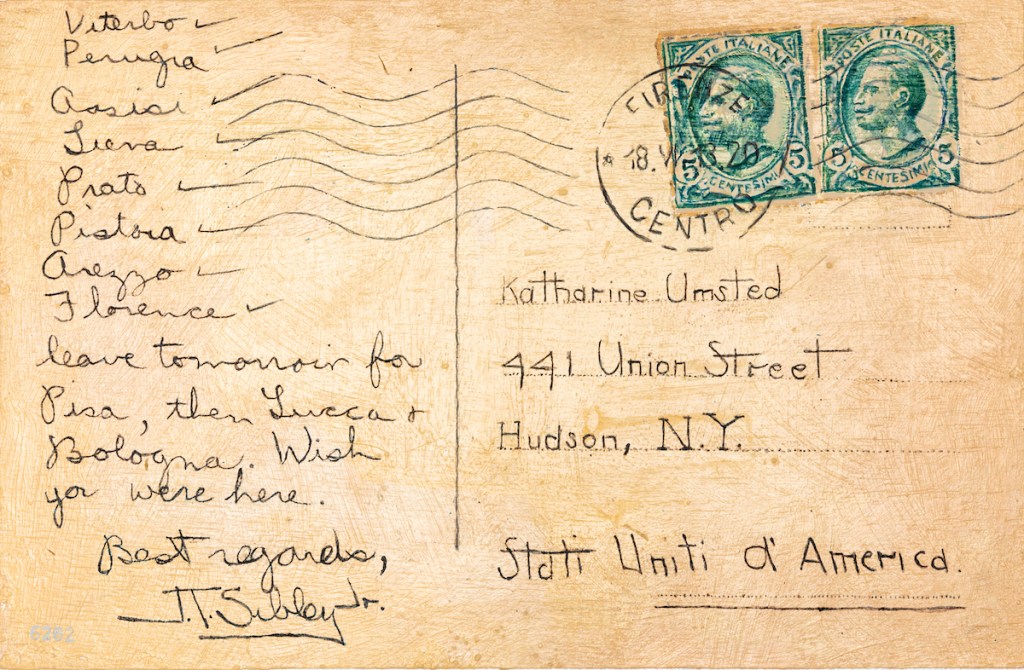 Viterbo
Perugia
Assisi
Siena
Prato
Pistoia
Arezzo
Florence
leave tomorrow for
Pisa, then Lucca &
Bologna. Wish
you were here.
Best regards,
J.T. Sibley Jr.
E202
POSTE ITALIANE
5 CENTESIMI 5
POSTE ITALIANE
5 CENTESIMI 5
FIRENZE
CENTRO
Katharine Umsted
441 Union Street
Hudson, N.Y.
Stati Uniti d'America.